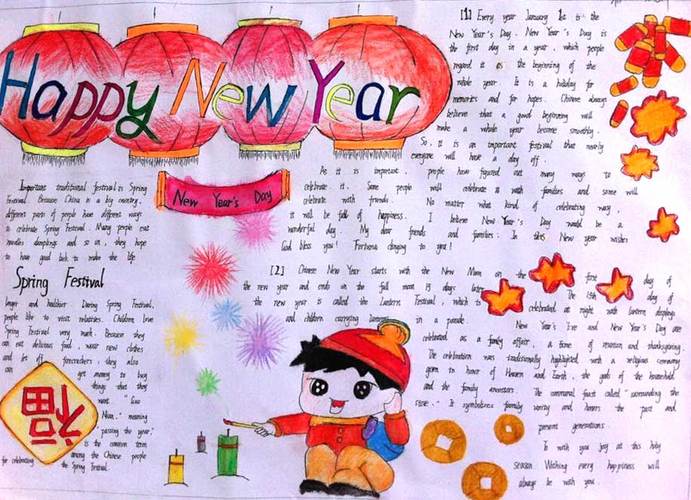 Happy New Year
New Year's Day
[1] Every year January 1st is the
New Year's Day. New Year's Day is
the first day in a year, which people
regard it as the beginning of the
whole year. It is a holiday for
memories and for hopes. Chinese always
believe that a good beginning will
make a whole year become smoothly.
So, it is an important festival that nearly
everyone will have a day off.
As it is important, people have figured out many ways to
celebrate it. Some people will celebrate it with families and some will
celebrate with friends. No matter what kind of celebrating way,
it will be full of happiness. I believe New Year's Day would be a
wonderful day. My dear friends and families: In this New year wishes
God bless you! Fortune clinging to you!
Important traditional festival is Spring
Festival. Because China is a big country,
different parts of people have different ways
to celebrate Spring Festival. Many people eat
noodles dumplings and so on, they hope
to have good luck to make the life
Spring Festival
longer and healthier. During Spring Festival,
people like to visit relatives. Children love
Spring Festival very much. Because they
can eat delicious food, wear new clothes
and let off firecrackers, they also
can get money to buy
things that they
want. "Guo
Nian," meaning
"passing the year,"
is the common term
among the Chinese people
for celebrating the Spring Festival.
福
[2] Chinese New Year starts with the New Moon on the first day of
the new year and ends on the full moon 15 days later. The 15th day of
the new year is called the Lantern Festival, which is celebrated at night with lantern displays
and children carrying lanterns in a parade.
New Year's Eve and New Year's Day are
celebrated as a family affair, a time of reunion and thanksgiving.
The celebration was traditionally highlighted with a religious ceremony
given in honor of Heaven and Earth, the gods of the household
and the family ancestors. The communal feast called "surrounding the
stove." It symbolizes family unity and honors the past and
present generations.
To wish you joy at this holy
season. Wishing every happiness will
always be with you.